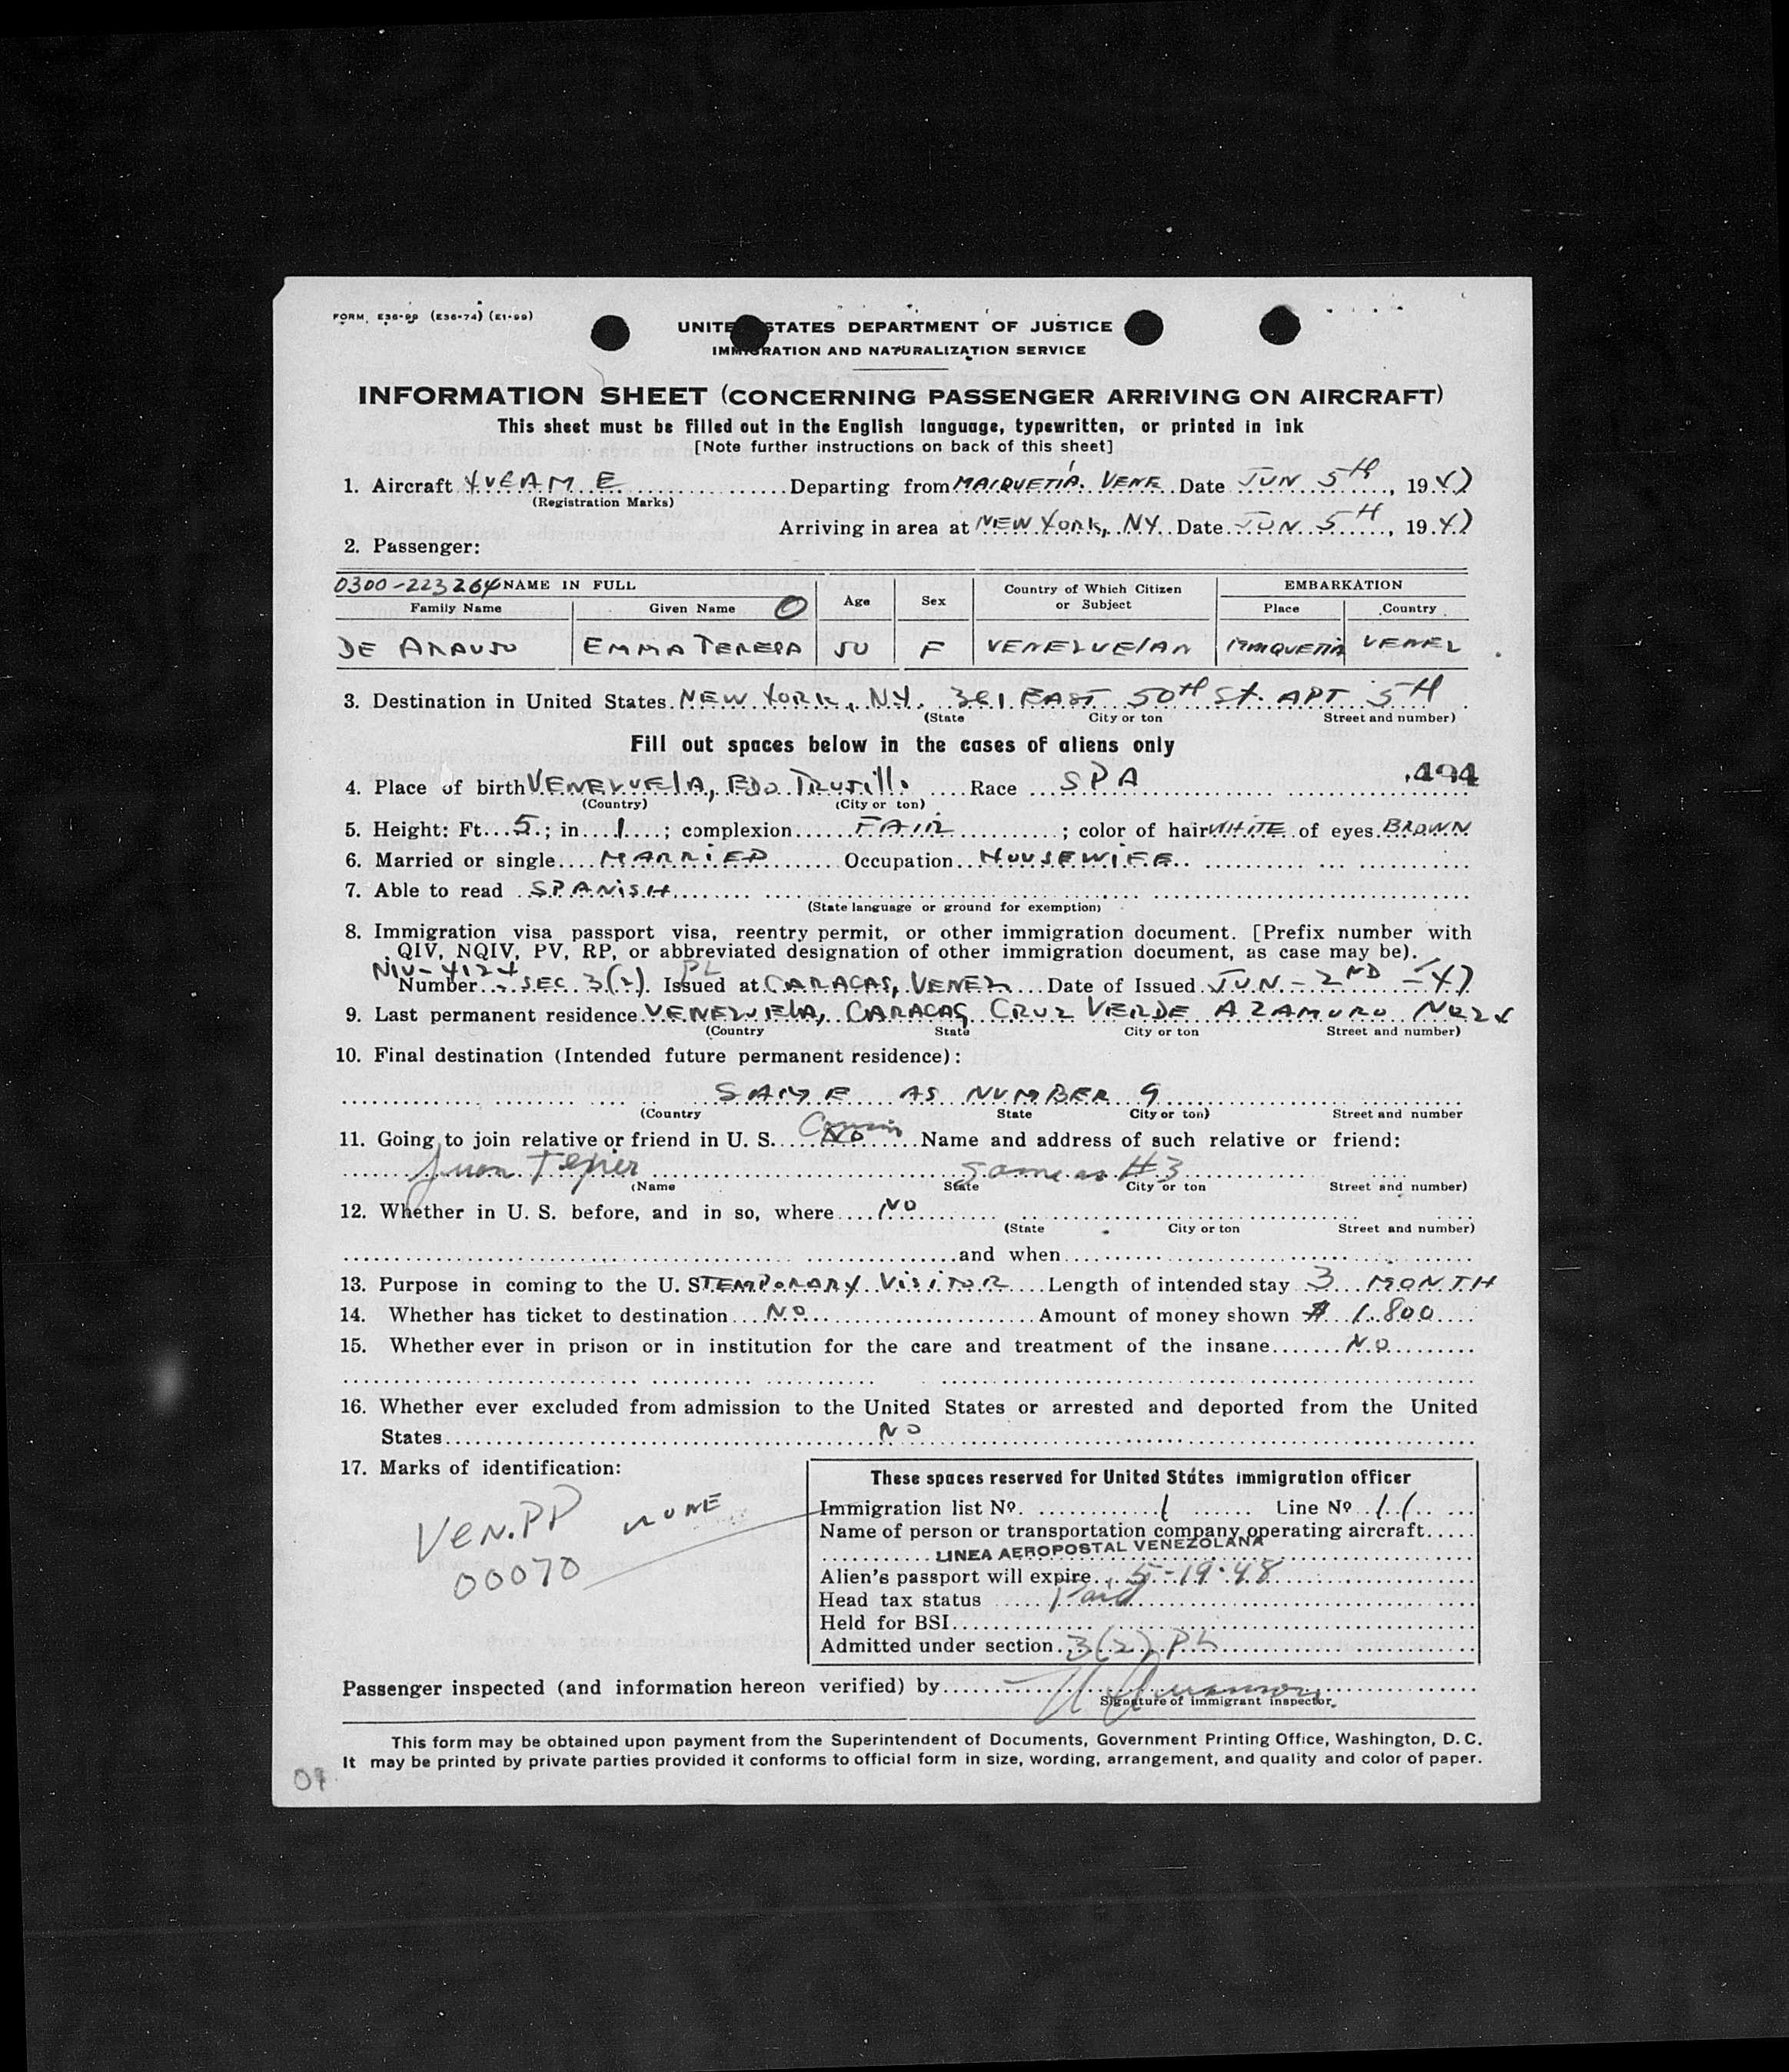 FORM E36-99 (E36-74) (E1-99)
UNITED STATES DEPARTMENT OF JUSTICE
IMMIGRATION AND NATURALIZATION SERVICE
INFORMATION SHEET (CONCERNING PASSENGER ARRIVING ON AIRCRAFT)
This sheet must be filled out in the English language, typewritten, or printed in ink
[Note further instructions on back of this sheet]
1. Aircraft YVCAME Departing from MAIQUETÍA. VENE Date JUN 5TH, 1947
(Registration Marks)
Arriving in area at NEW YORK, NY. Date JUN 5TH, 1947
2. Passenger:
0300-223264 NAME IN FULL Age Sex Country of Which Citizen or Subject EMBARKATION
Family Name Given Name O Place Country
DE ARAUJO EMMA TERESA 50 F VENEZUELAN MAIQUETIA VENEZ
3. Destination in United States NEW YORK, N.Y. 301 EAST 50TH St. APT 5TH
(State City or ton Street and number)
Fill out spaces below in the cases of aliens only
4. Place of birth VENEZUELA, EDO TRUJILLO Race SPA 494
(Country) (City or ton)
5. Height: Ft. 5; in 1; complexion FAIR; color of hair WHITE of eyes BROWN
6. Married or single MARRIED Occupation HOUSEWIFE
7. Able to read SPANISH
(State language or ground for exemption)
8. Immigration visa passport visa, reentry permit, or other immigration document. [Prefix number with
QIV, NQIV, PV, RP, or abbreviated designation of other immigration document, as case may be).
NIV- PL
Number - SEC 3(2). Issued at CARACAS, VENEZ Date of Issued JUN-2ND-47
9. Last permanent residence VENEZUELA, CARACAS CRUZ VERDE A ZAMURO
(Country State City or ton Street and number)
10. Final destination (Intended future permanent residence):
SAME AS NUMBER 9
(Country State City or ton) Street and number
11. Going to join relative or friend in U. S. No Cousin Name and address of such relative or friend:
Juan Same as #3
(Name State City or ton Street and number)
12. Whether in U. S. before, and in so, where NO
(State City or ton Street and number)
and when
13. Purpose in coming to the U. S TEMPORARY VISITOR Length of intended stay 3 MONTH
14. Whether has ticket to destination NO Amount of money shown $ 1.800
15. Whether ever in prison or in institution for the care and treatment of the insane NO
16. Whether ever excluded from admission to the United States or arrested and deported from the United
States NO
17. Marks of identification:
NONE
VEN.PP
00070
These spaces reserved for United States immigration officer
Immigration list No. 1 Line No 11
Name of person or transportation company operating aircraft
LINEA AEROPOSTAL VENEZOLANA
Alien's passport will expire 5-19-48
Head tax status Paid
Held for BSI
Admitted under section 3(2) PL
Passenger inspected (and information hereon verified) by
Signature of immigrant inspector.
This form may be obtained upon payment from the Superintendent of Documents, Government Printing Office, Washington, D. C.
It may be printed by private parties provided it conforms to official form in size, wording, arrangement, and quality and color of paper.